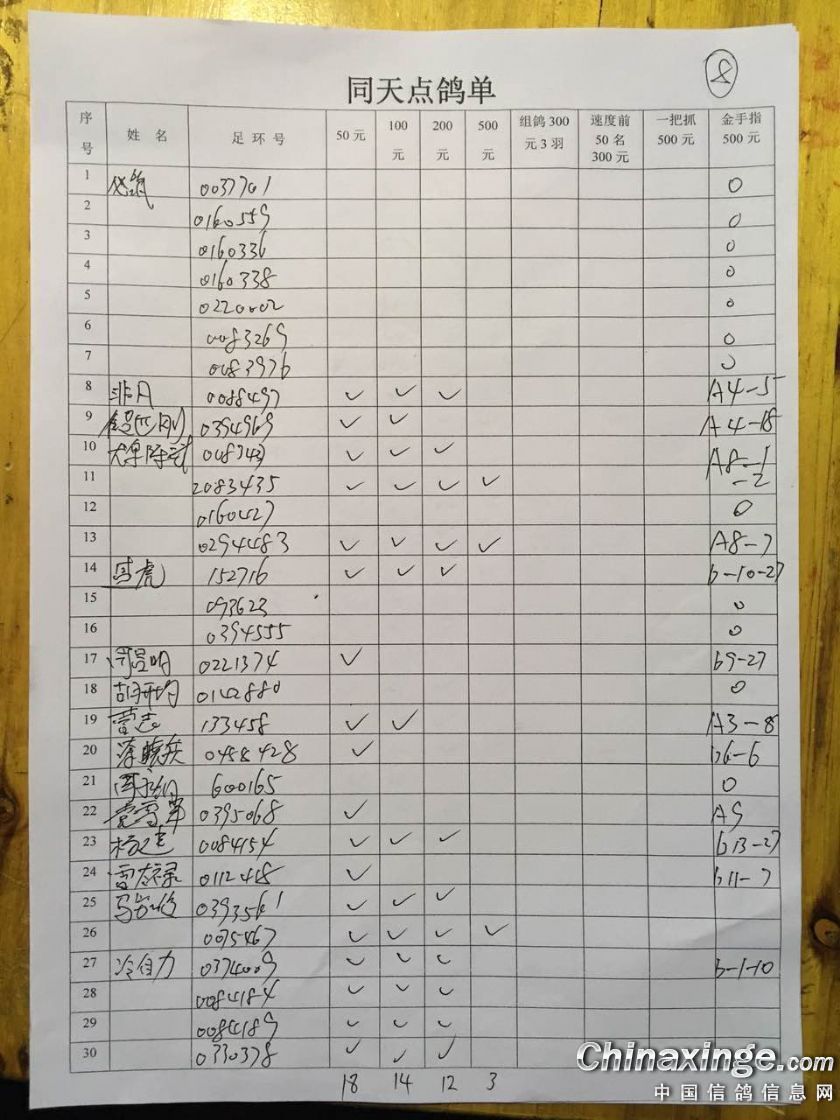 8
同天点鸽单
序号 姓名 足环号 50元 100元 200元 500元 组鸽300元3羽 速度前50名300元 一把抓500元 金手指500元
1 0037701 0
2 0160559 0
3 0160336 0
4 0160338 0
5 0220002 0
6 0083269 0
7 0083976 0
8 非凡 0088497 ✓ ✓ ✓ A4-5
9 0394969 ✓ ✓ A4-18
10 ✓ ✓ ✓ A8-1
11 2083435 ✓ ✓ ✓ ✓ -2
12 0160427 0
13 0294483 ✓ ✓ ✓ ✓ A8-7
14 152716 ✓ ✓ ✓ b-10-27
15 093623 0
16 0394555 0
17 0221374 ✓ b9-27
18 0142880 0
19 133458 ✓ ✓ A3-8
20 0458428 ✓ b6-6
21 600165 0
22 0395068 ✓ A9
23 0084154 ✓ ✓ ✓ b13-27
24 0112418 ✓ b11-7
25 0393561 ✓ ✓ ✓
26 0075467 ✓ ✓ ✓ ✓
27 冷自力 0374009 ✓ ✓ ✓ b-1-10
28 0084184 ✓ ✓ ✓
29 0084189 ✓ ✓ ✓
30 0330378 ✓ ✓ ✓
18 14 12 3
Chinaxinge.com
中国信鸽信息网